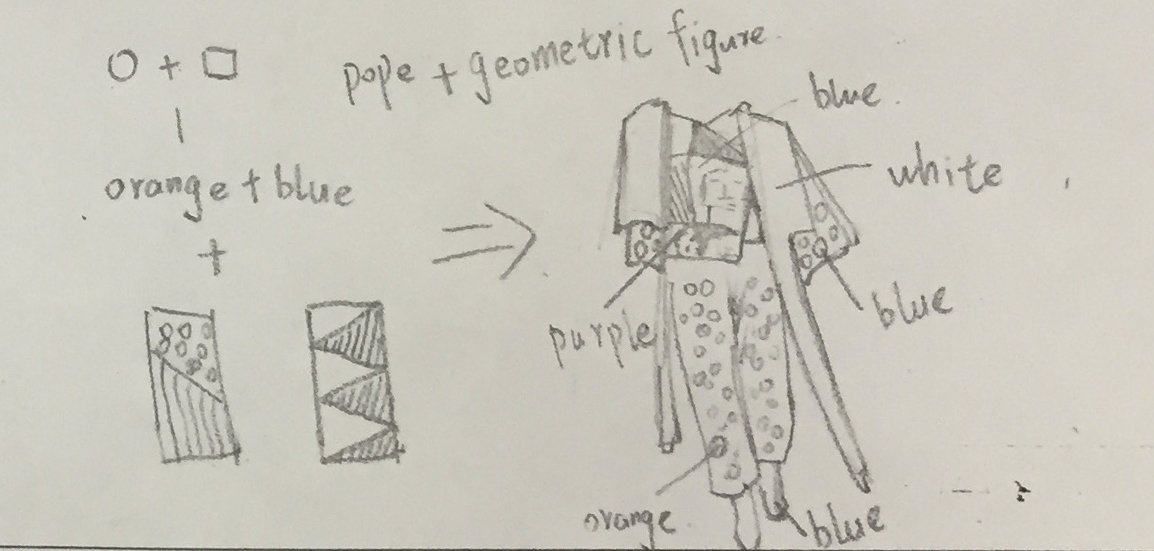 O + □
pope + geometric figure.
orange + blue
+
blue.
white
blue
purple
orange.
blue